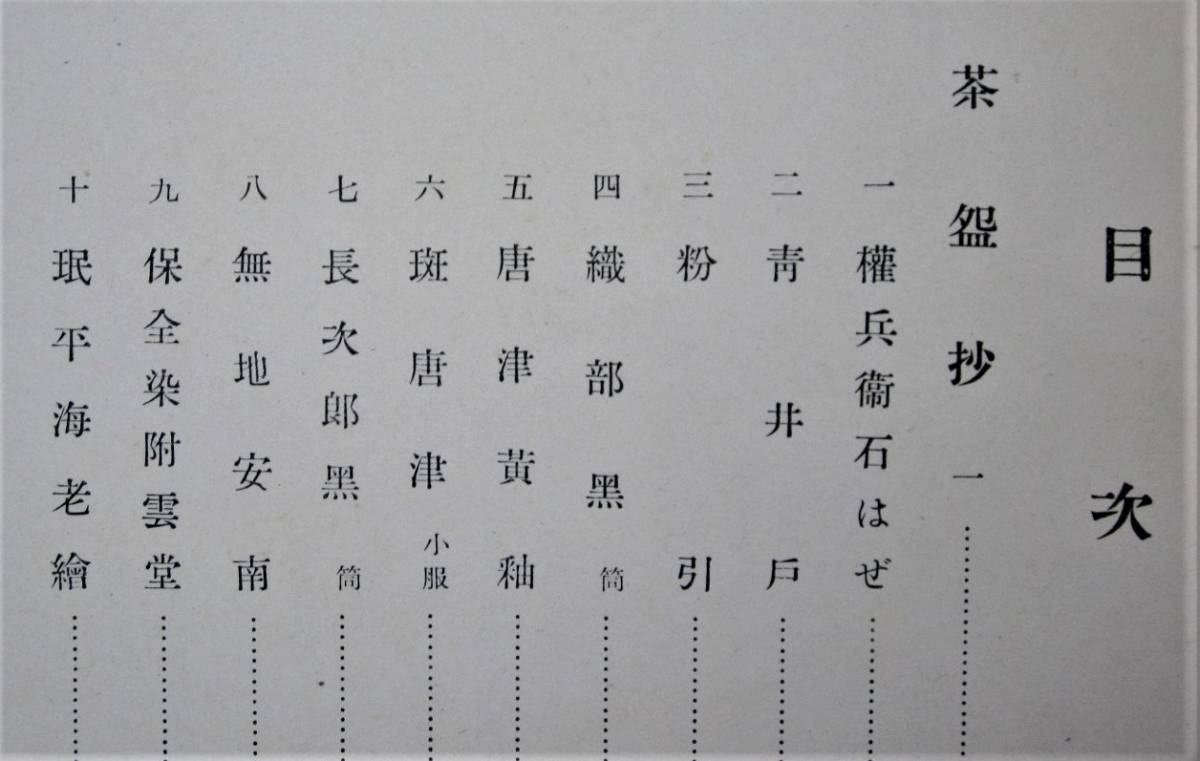 目次
茶盌抄 一…………
一 權兵衞石はぜ…………
二 靑井戶…………
三 粉引…………
四 織部黑 筒…………
五 唐津黃釉…………
六 斑唐津 小服…………
七 長次郞黑 筒…………
八 無地安南…………
九 保全染附雲堂…………
十 珉平海老繪…………